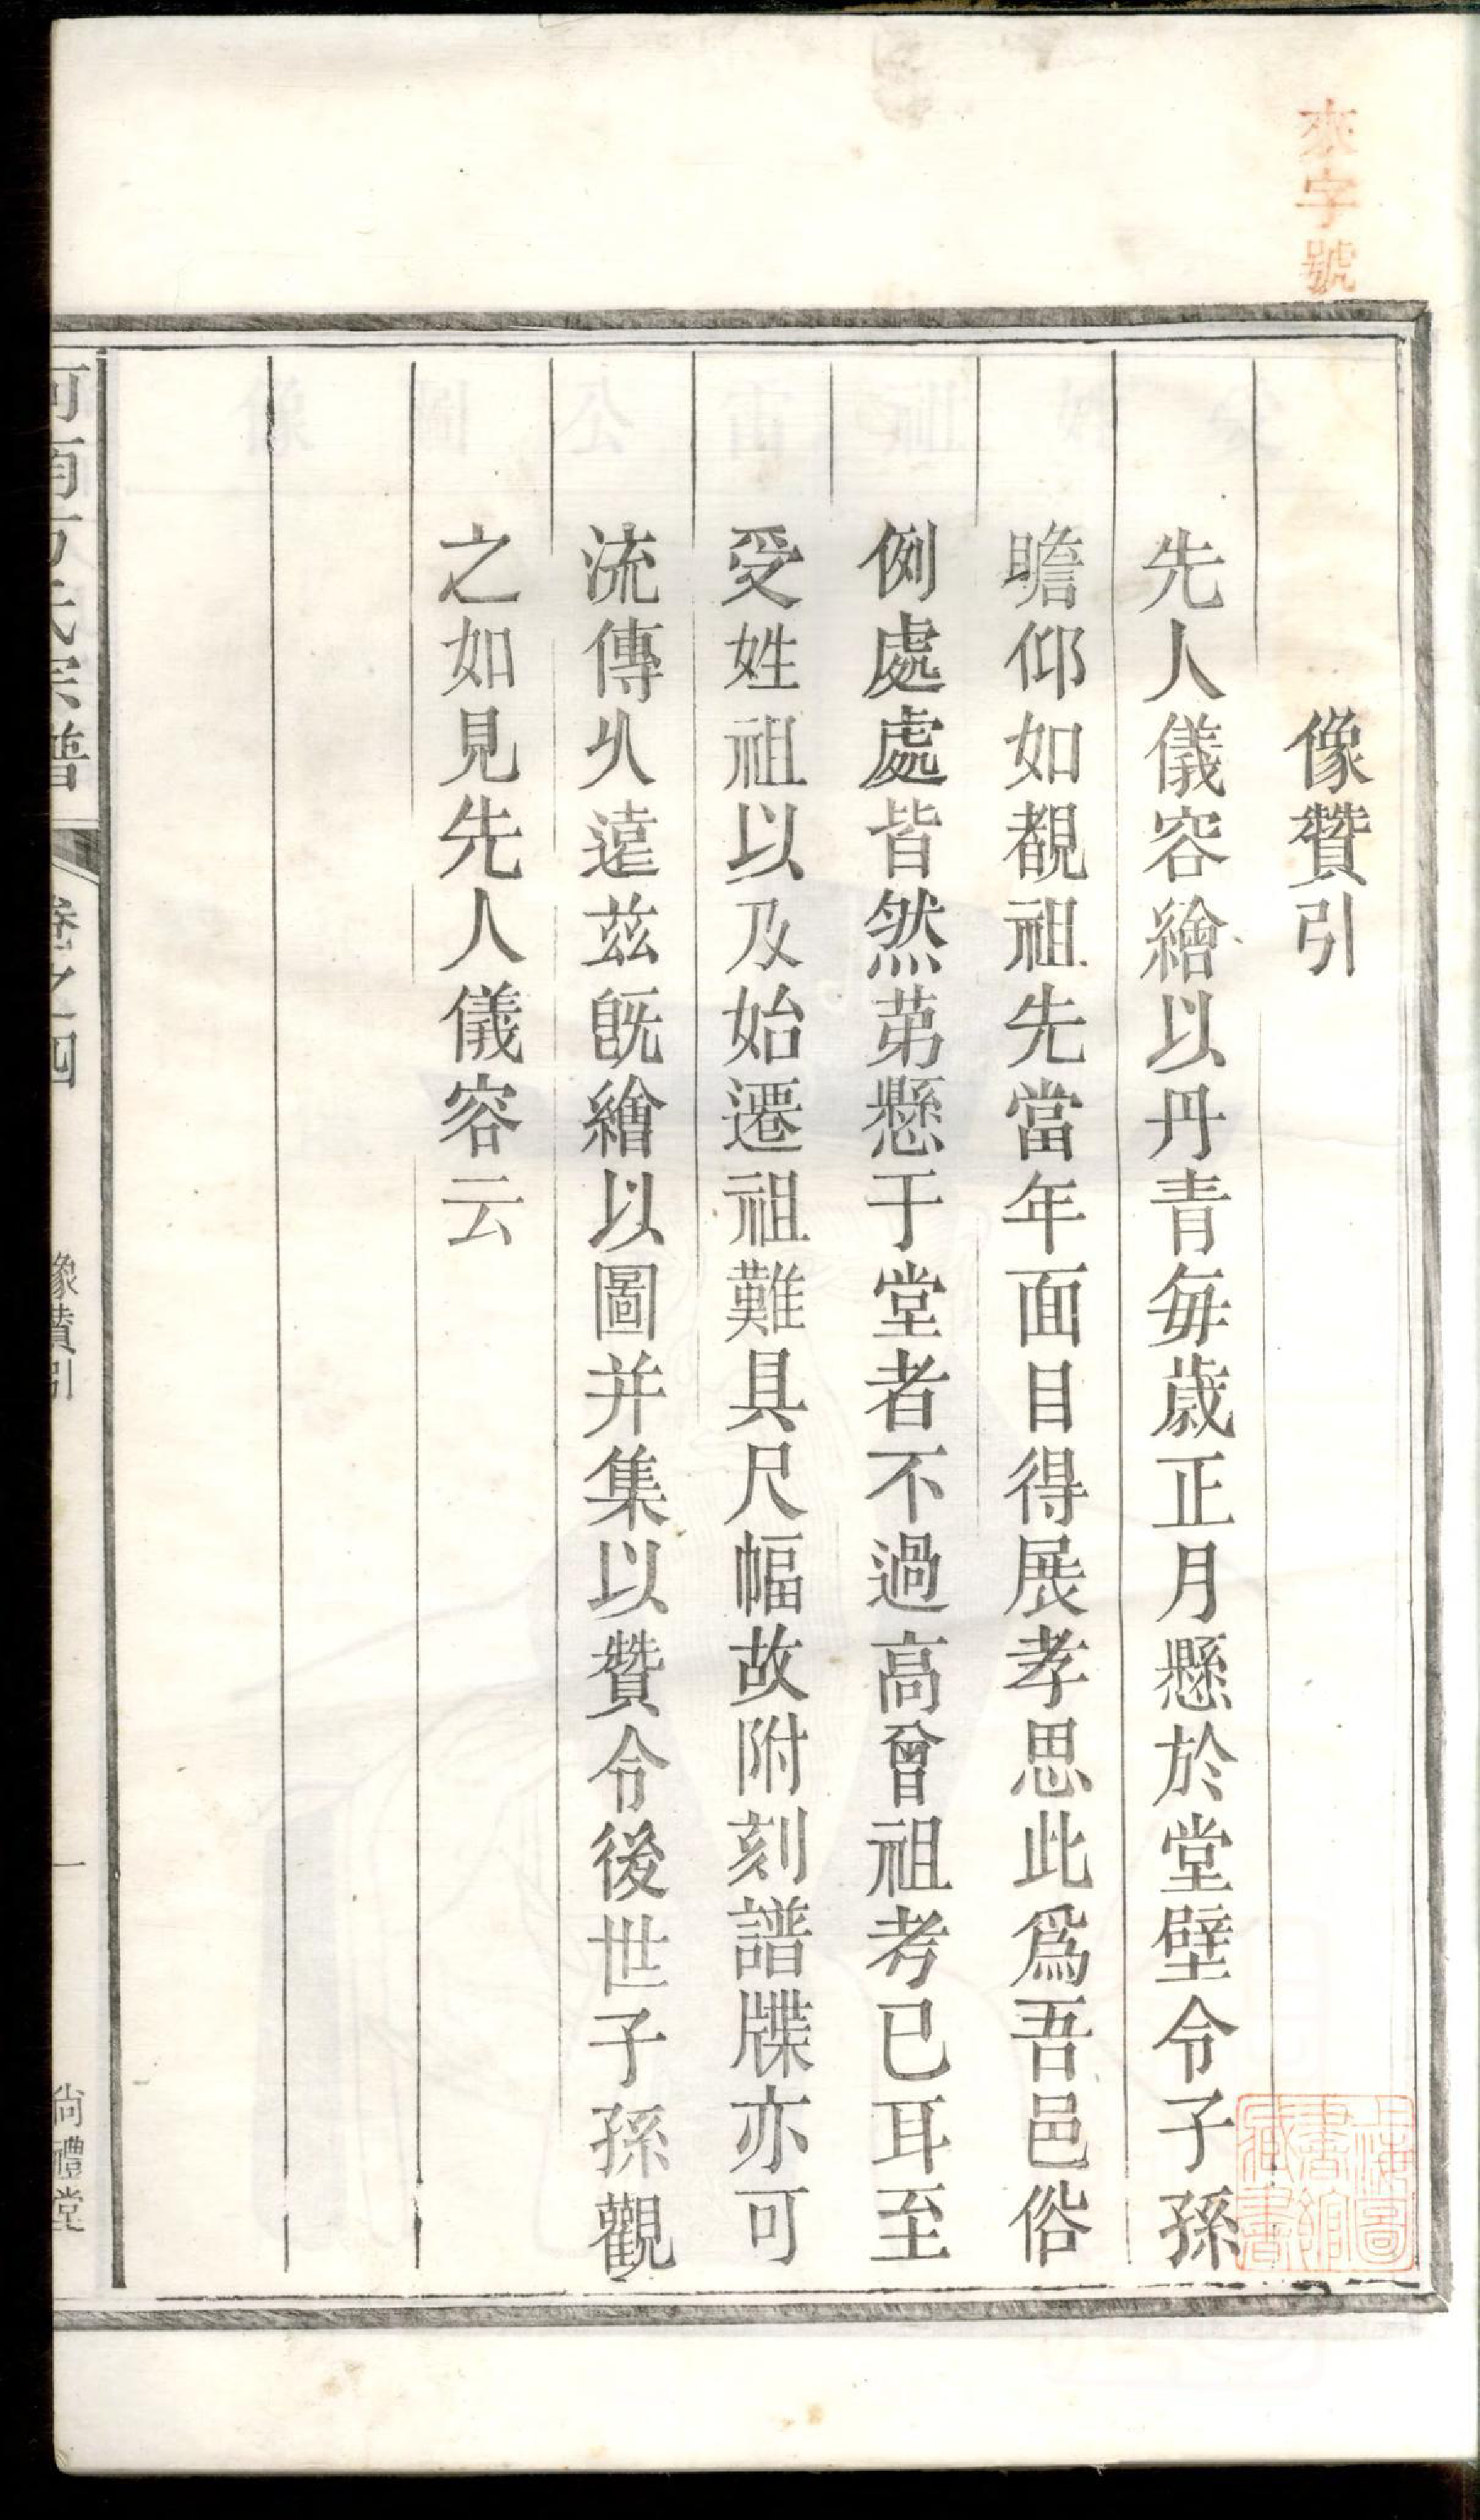 來字號
像贊引
先人儀容繪以丹青每歲正月懸於堂壁令子孫
瞻仰如覩祖先當年面目得展孝思此爲吾邑俗
例處處皆然苐懸于堂者不過高曾祖考已耳至
受姓祖以及始遷祖難具尺幅故附刻譜牒亦可
流傳乆遠茲旣繪以圖并集以贊令後世子孫觀
之如見先人儀容云
河南方氏宗譜
卷之四
像贊引
一
尚禮堂
上海圖書館藏書